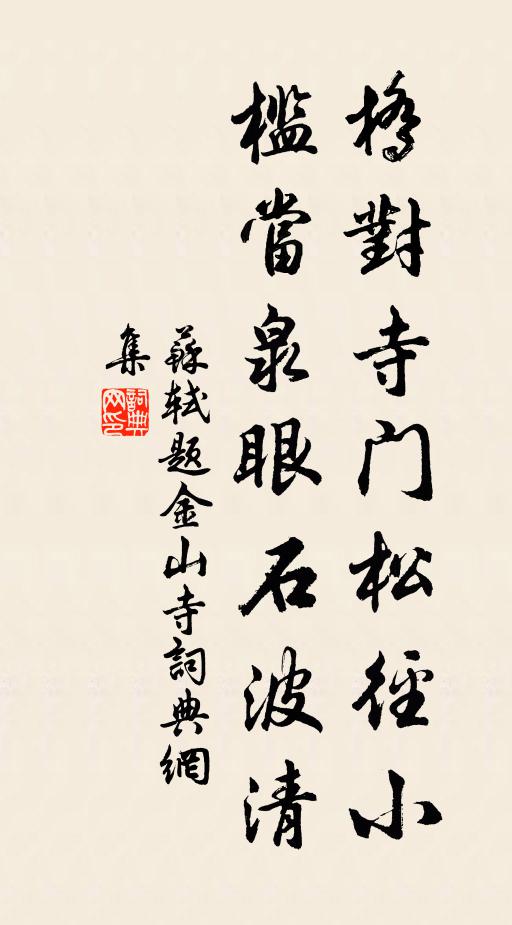 橋對寺門松徑小
檻當泉眼石波清
蘇軾題金山寺詞典網
集
詞典
网印